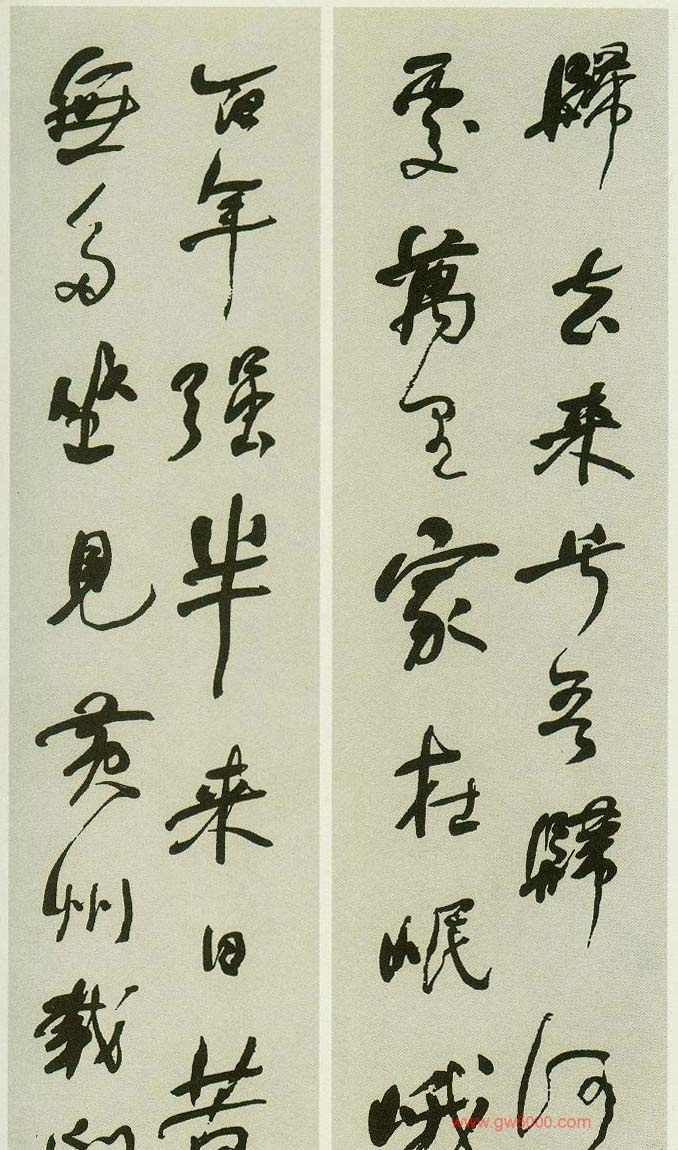 歸去来兮吾歸何
處萬里家在岷峨
百年强半来日苦
無多坐見黄州載
www.gw5000.com